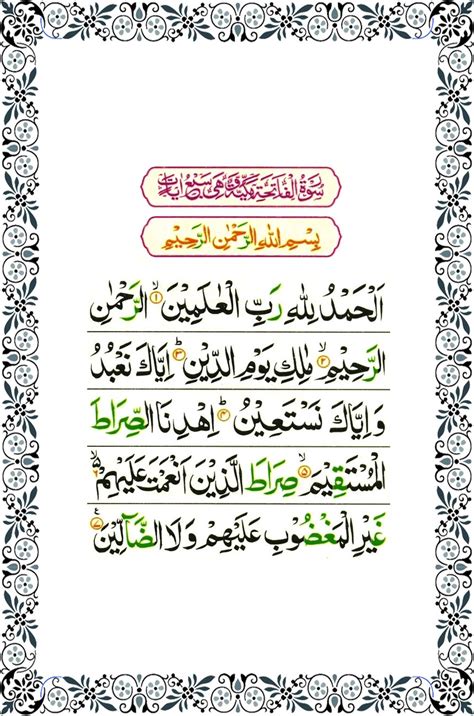 سُوْرَةُ الْفَاتِحَةِ مَكِّيَّةٌ وَّهِيَ سَبْعُ اٰيَاتٍ
بِسْمِ اللّٰهِ الرَّحْمٰنِ الرَّحِيْمِ
اَلْحَمْدُ لِلّٰهِ رَبِّ الْعٰلَمِيْنَ ۙ﴿۱﴾ الرَّحْمٰنِ
الرَّحِيْمِ ۙ﴿۲﴾ مٰلِكِ يَوْمِ الدِّيْنِ ؕ﴿۳﴾ اِيَّاكَ نَعْبُدُ
وَاِيَّاكَ نَسْتَعِيْنُ ؕ﴿۴﴾ اِهْدِنَا الصِّرَاطَ
الْمُسْتَقِيْمَ ۙ﴿۵﴾ صِرَاطَ الَّذِيْنَ اَنْعَمْتَ عَلَيْهِمْ ۙ﴿۶﴾
غَيْرِ الْمَغْضُوْبِ عَلَيْهِمْ وَلَا الضَّآلِّيْنَ ﴿۷﴾